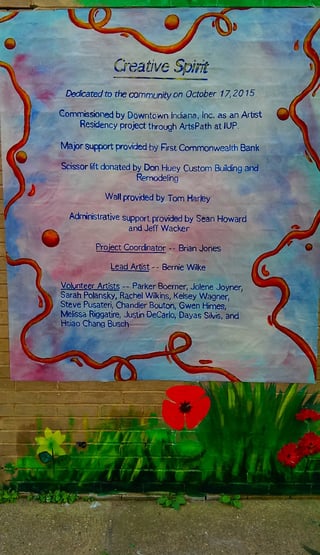 Creative Spirit
Dedicated to the community on October 17, 2015
Commissioned by Downtown Indiana, Inc. as an Artist
Residency project through ArtsPath at IUP.
Major support provided by First Commonwealth Bank
Scissor lift donated by Don Huey Custom Building and
Remodeling
Wall provided by Tom Harley
Administrative support provided by Sean Howard
and Jeff Wacker
Project Coordinator -- Brian Jones
Lead Artist -- Bernie Wilke
Volunteer Artists -- Parker Boerner, Jolene Joyner,
Sarah Polansky, Rachel Wilkins, Kelsey Wagner,
Steve Pusateri, Chandler Bouton, Gwen Himes,
Melissa Riggatire, Justin DeCarlo, Dayas Silvis, and
Hsiao Chang Busch